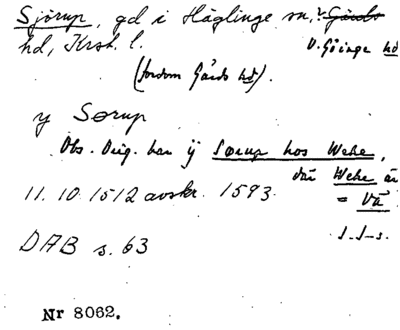 Sjörup, gd i Häglinge sn, V. Gärds
hd, Krst. l. V. Göinge hd
(fordom Gärds hd).
y Sørup
Obs. Orig. har ij Sørup hos Wehe,
där Wehe är
11.10.1512 avskr. 1593. = Vä
DAB s. 63 J.J-s.
Nr 8062.